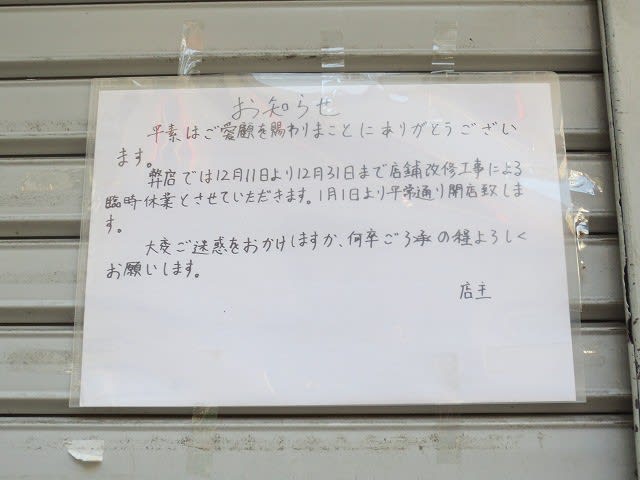 お知らせ
平素はご愛顧を賜わりまことにありがとうござい
ます。
弊店では12月11日より12月31日まで店舗改修工事による
臨時休業とさせていただきます。1月1日より平常通り開店致しま
す。
大変ご迷惑をおかけしますが、何卒ご了承の程よろしく
お願いします。
店主